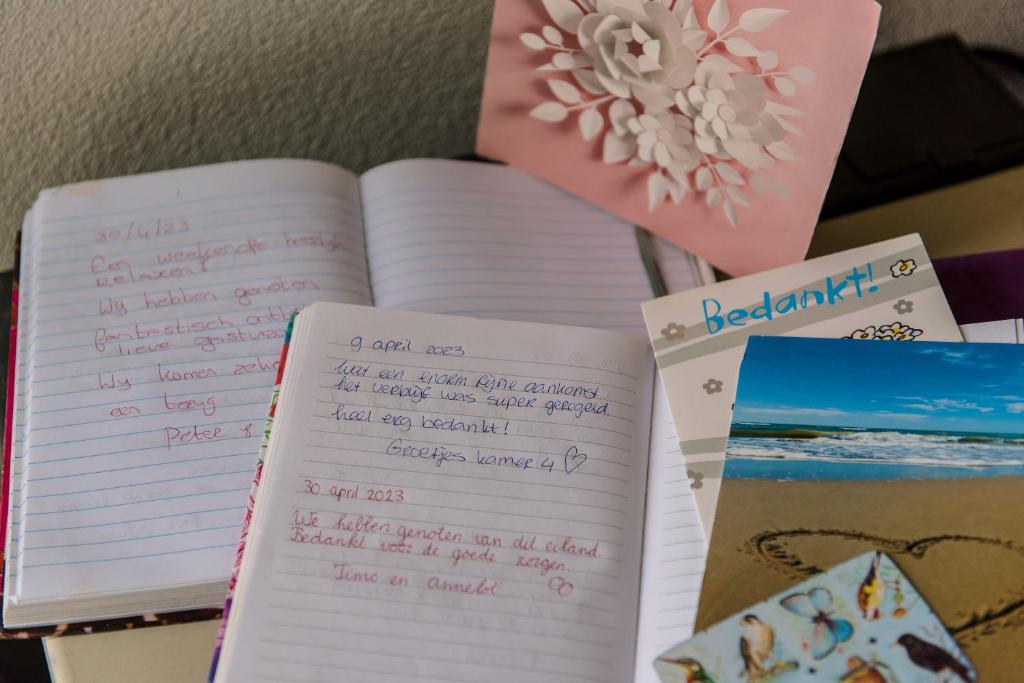 30/4/23
Een weekendje heerlijk
Relaxen!
Wij hebben genoten
fantastisch
lieve
Wij komen
een terug
Peter &
9 april 2023
Wat een enorm fijne aankomst
het verblijf was super geregeld
heel erg bedankt!
Groetjes kamer 4
30 april 2023
We hebben genoten van dit eiland.
Bedankt voor de goede zorgen.
Timo en Annelot
Bedankt!